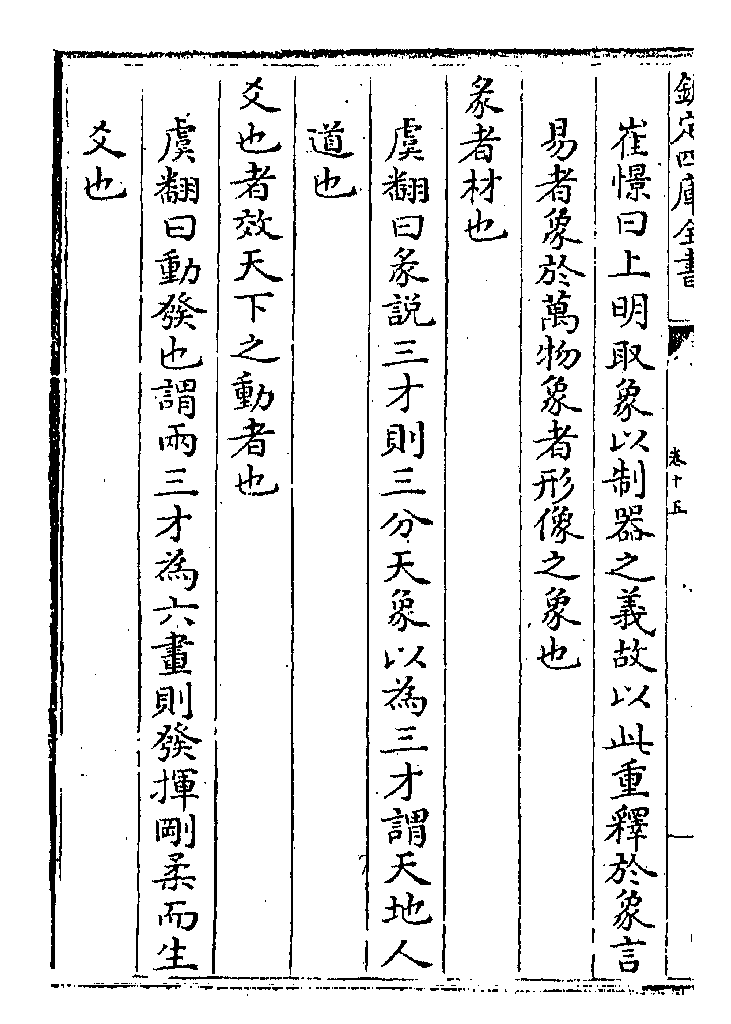 欽定四庫全書
卷十五
崔憬曰上明取象以制器之義故以此重釋於象言
易者象於萬物象者形像之象也
彖者材也
虞翻曰彖說三才則三分天象以為三才謂天地人
道也
爻也者效天下之動者也
虞翻曰動發也謂兩三才為六畫則發揮剛柔而生
爻也